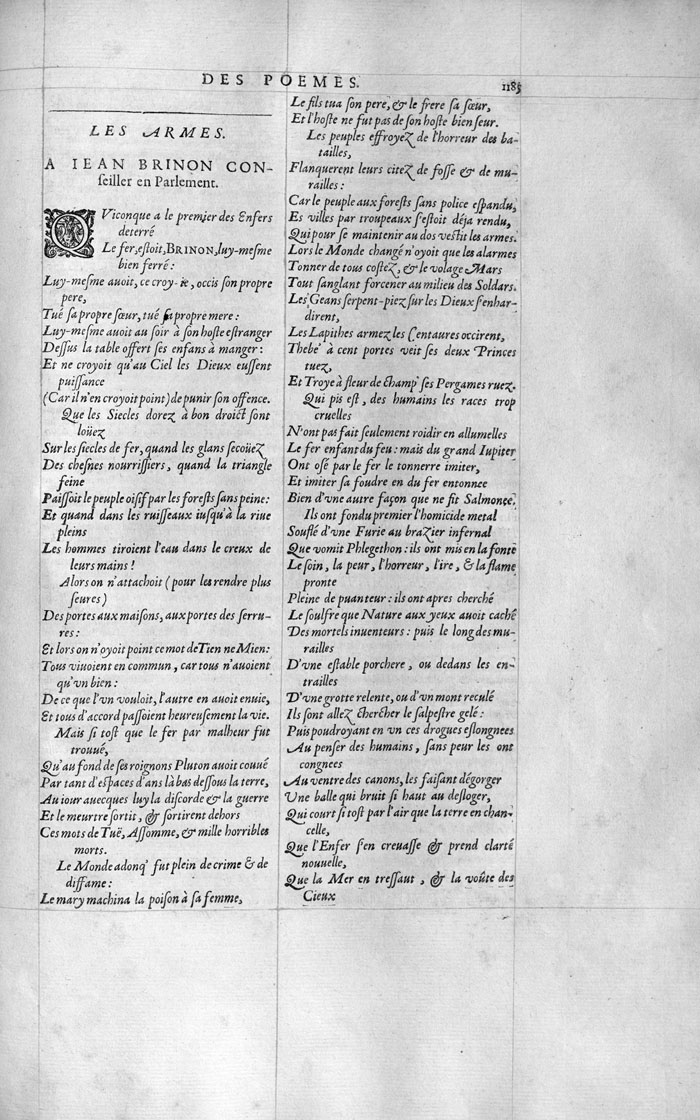 DES POEMES.
1185
LES ARMES.
A IEAN BRINON CON-
ſeiller en Parlement.
QViconque a le premier des Enfers
deterré
Le fer, eſtoit, BRINON, luy-meſme
bien ferré :
Luy-meſme auoit, ce croy-ie, occis ſon propre
pere,
Tué ſa propre ſœur, tué ſa propre mere :
Luy-meſme auoit au ſoir à ſon hoſte eſtranger
Deſſus la table offert ſes enfans à manger :
Et ne croyoit qu'au Ciel les Dieux euſſent
puiſſance
(Car il n'en croyoit point) de punir ſon offence.
Que les Siecles dorez à bon droict ſont
loüez
Sur les ſiecles de fer, quand les glans ſecoüez
Des cheſnes nourriſſiers, quand la triangle
feine
Paiſſoit le peuple oiſif par les foreſts ſans peine :
Et quand dans les ruiſſeaux iuſqu'à la riue
pleins
Les hommes tiroient l'eau dans le creux de
leurs mains !
Alors on n'attachoit (pour les rendre plus
ſeures)
Des portes aux maiſons, aux portes des ſerru-
res :
Et lors on n'oyoit point ce mot de Tien ne Mien :
Tous viuoient en commun, car tous n'auoient
qu'vn bien :
De ce que l'vn vouloit, l'autre en auoit enuie,
Et tous d'accord paſſoient heureuſement la vie.
Mais ſi toſt que le fer par malheur fut
trouué,
Qu'au fond de ſes roignons Pluton auoit couué
Par tant d'eſpaces d'ans là bas deſſous la terre,
Au iour auecques luy la diſcorde & la guerre
Et le meurtre ſortit, & ſortirent dehors
Ces mots de Tuë, Aſſomme, & mille horribles
morts.
Le Monde adonq' fut plein de crime & de
diffame :
Le mary machina la poiſon à ſa femme,
Le fils tua ſon pere, & le frere ſa ſœur,
Et l'hoſte ne fut pas de ſon hoſte bien ſeur.
Les peuples effroyez de l'horreur des ba-
tailles,
Flanquerent leurs citez de foſſe & de mu-
railles :
Car le peuple aux foreſts ſans police eſpandu,
Es villes par troupeaux s'eſtoit déja rendu,
Qui pour ſe maintenir au dos veſtit les armes.
Lors le Monde changé n'oyoit que les alarmes
Tonner de tous coſtez, & le volage Mars
Tout ſanglant forcener au milieu des Soldars.
Les Geans ſerpent-piez ſur les Dieux s'enhar-
dirent,
Les Lapithes armez les Centaures occirent,
Thebe' à cent portes veit ſes deux Princes
tuez,
Et Troye à fleur de champ ſes Pergames ruez.
Qui pis eſt, des humains les races trop
cruelles
N'ont pas fait ſeulement roidir en allumelles
Le fer enfant du feu : mais du grand Iupiter
Ont oſé par le fer le tonnerre imiter,
Et imiter ſa foudre en du fer entonnee
Bien d'vne autre façon que ne fit Salmonee.
Ils ont fondu premier l'homicide metal
Souflé d'vne Furie au brazier infernal
Que vomit Phlegethon : ils ont mis en la fonte
Le ſoin, la peur, l'horreur, l'ire, & la flame
pronte
Pleine de puanteur : ils ont apres cherché
Le ſoulfre que Nature aux yeux auoit caché
Des mortels inuenteurs : puis le long des mu-
railles
D'vne eſtable porchere, ou dedans les en-
trailles
D'vne grotte relente, ou d'vn mont reculé
Ils ſont allez chercher le ſalpeſtre gelé :
Puis poudroyant en vn ces drogues eſlongnees
Au penſer des humains, ſans peur les ont
congnees
Au ventre des canons, les faiſant dégorger
Vne balle qui bruit ſi haut au deſloger,
Qui court ſi toſt par l'air que la terre en chan-
celle,
Que l'Enfer s'en creuaſſe & prend clarté
nouuelle,
Que la Mer en treſſaut, & la voûte des
Cieux